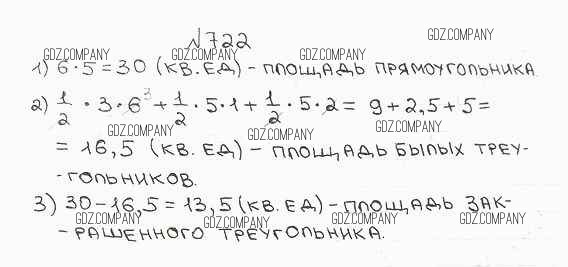 №722
GDZ.COMPANY
GDZ.COMPANY GDZ.COMPANY GDZ.COMPANY
1) 6·5=30 (КВ.ЕД) – ПЛОЩАДЬ ПРЯМОУГОЛЬНИКА.
2) 1/2 · 3 · 6³ + 1/2 · 5 · 1 + 1/2 · 5 · 2 = 9 + 2,5 + 5 =
GDZ.COMPANY GDZ.COMPANY GDZ.COMPANY
= 16,5 (КВ. ЕД) – ПЛОЩАДЬ БЫЛЫХ ТРЕУ-
-ГОЛЬНИКОВ.
3) 30–16,5=13,5 (КВ.ЕД) – ПЛОЩАДЬ ЗАК-
GDZ.COMPANY GDZ.COMPANY GDZ.COMPANY GDZ.COMPANY
-РАШЕННОГО ТРЕУГОЛЬНИКА.